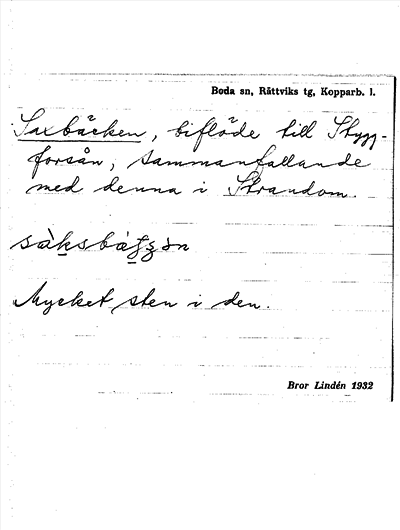 Boda sn, Rättviks tg, Kopparb. l.
Saxbäcken, biflöde till Stygg-
forsån, sammanfallande
med denna i Strandom.
Mycket sten i den.
Bror Lindén 1932